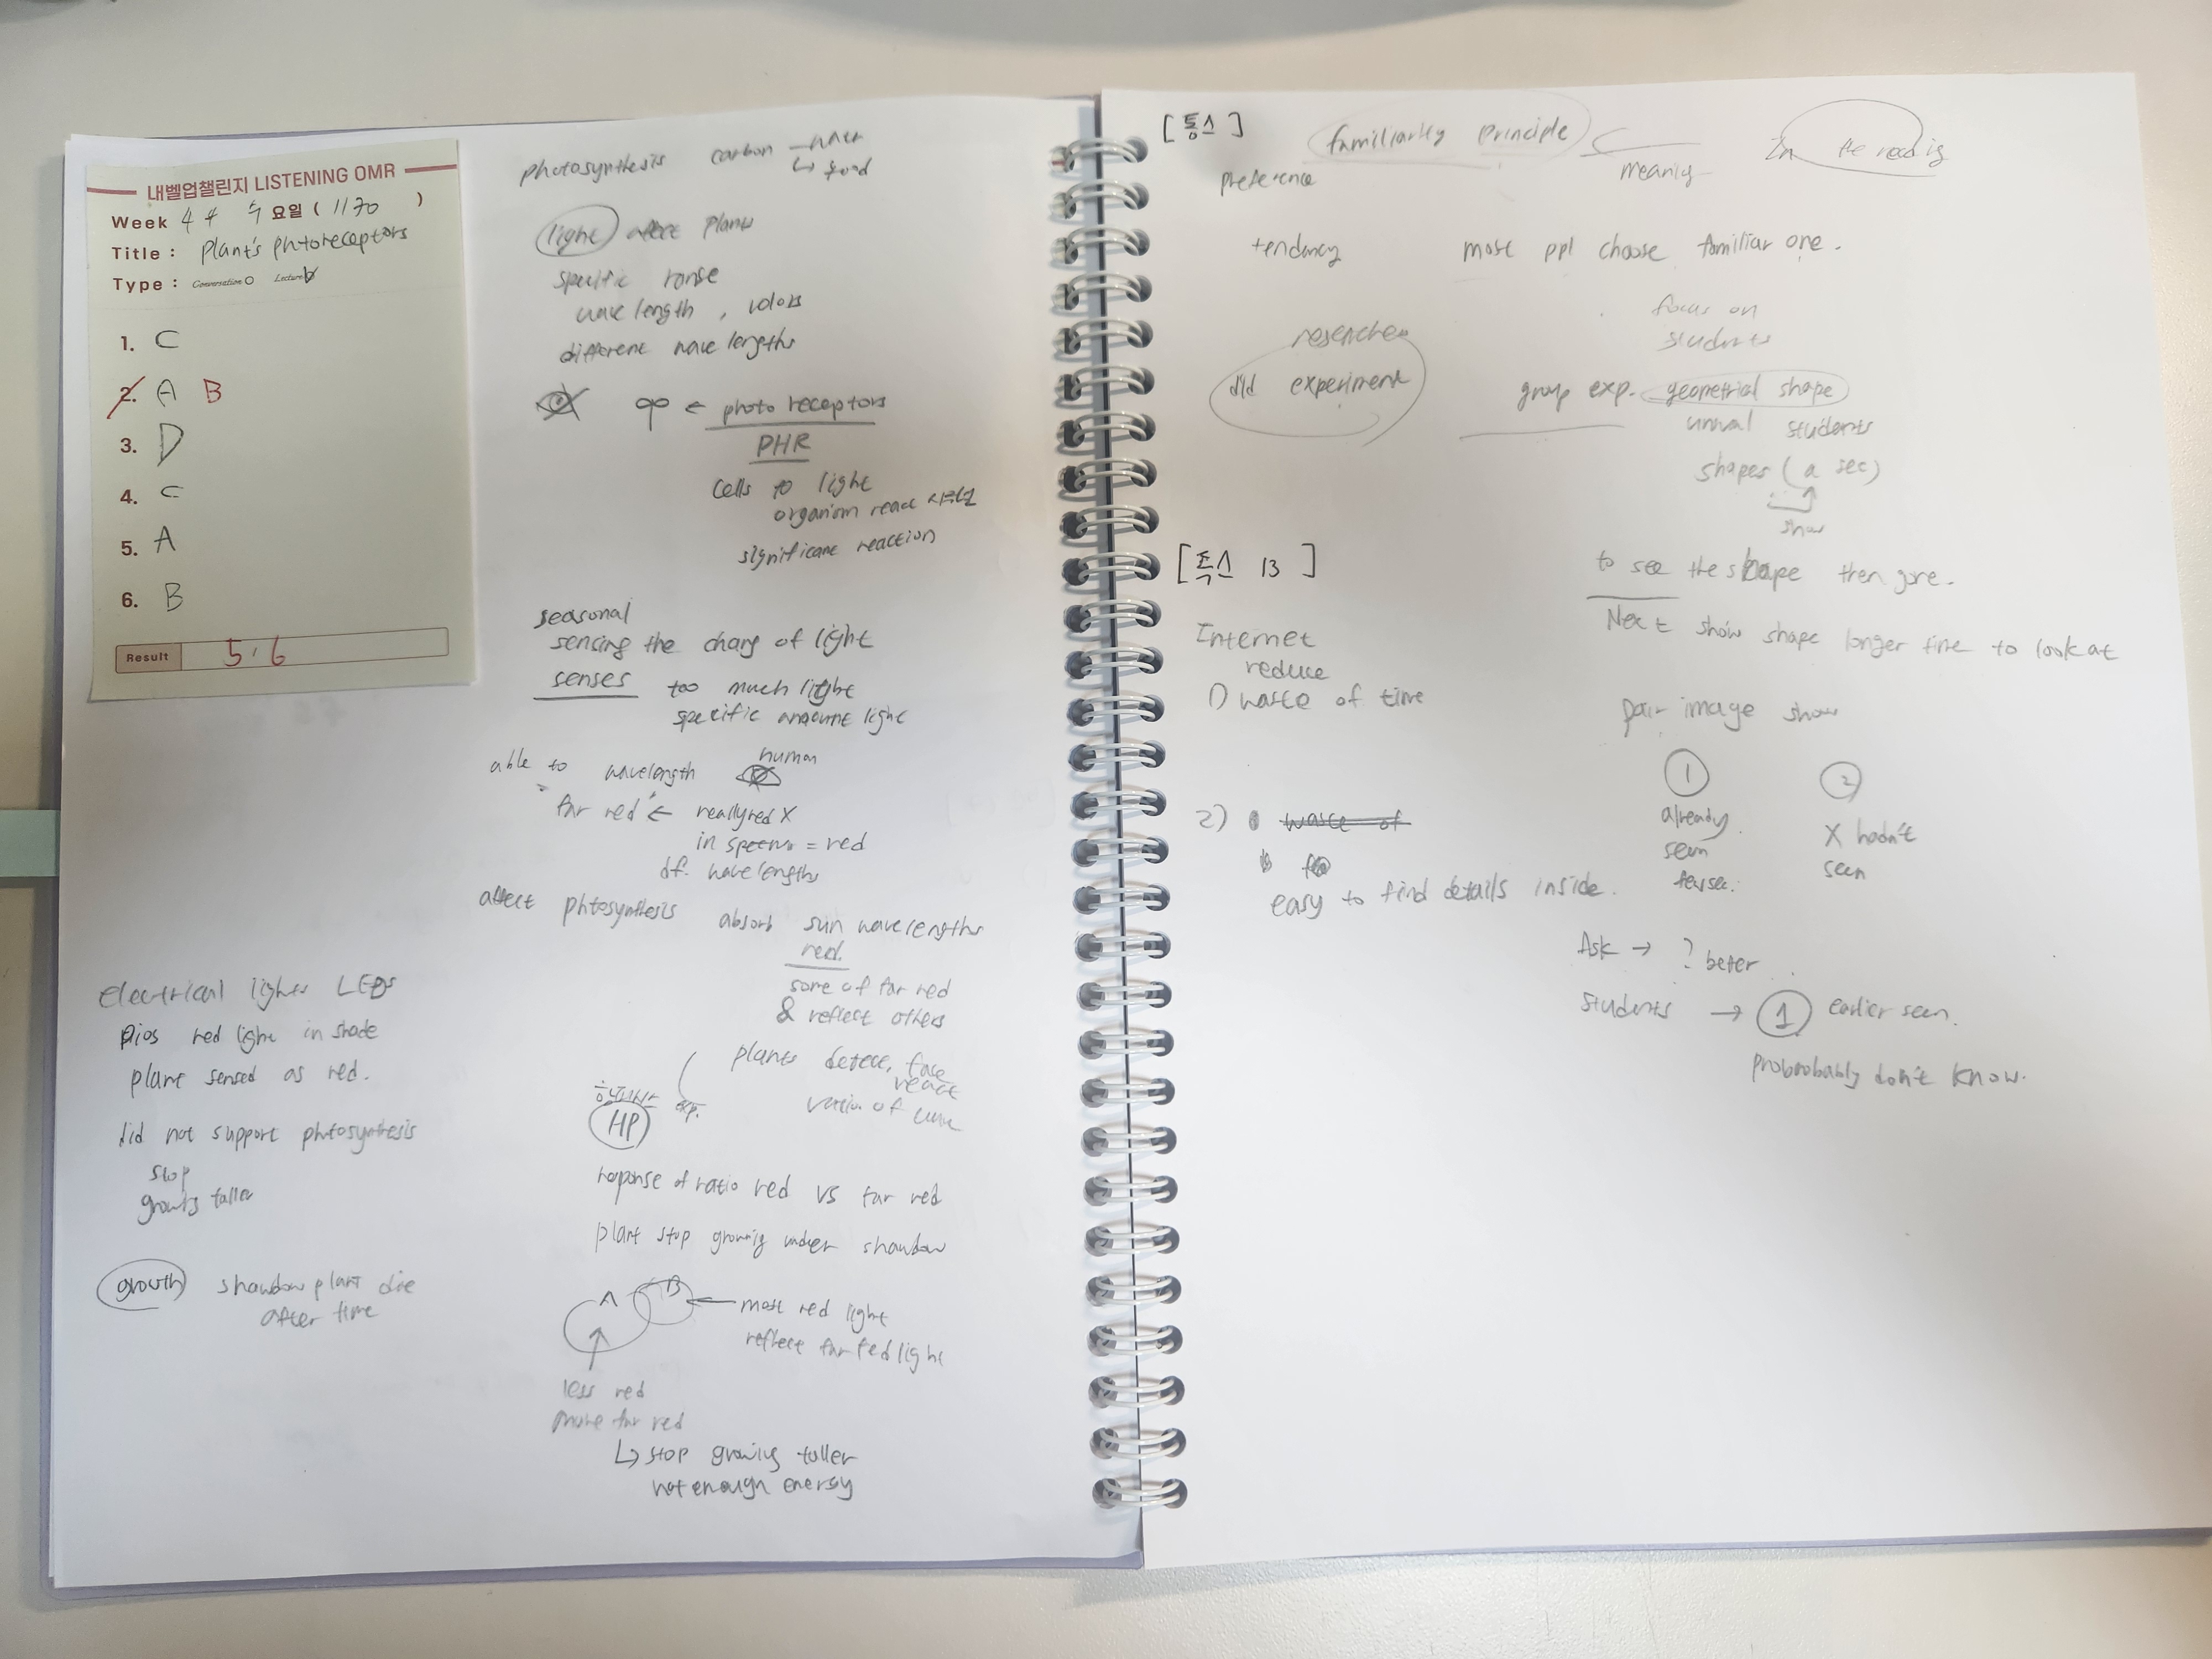 내벨업챌린지 LISTENING OMR
Week 4 수 요일 ( 1170 )
Title : Plant's phtoreceptors
Type : Conversation Lecture
1. C
2. A B
3. D
4. C
5. A
6. B
Result 5/6
photosynthesis carbon
↳ food
light affect plants
specific range
wavelength , colors
different wave lengths
← photo receptors
PHR
cells to light
organism react
significant reaction
seasonal
sensing the chang of light
senses too much light
specific amount light
able to wavelength human
far red ← really red X
in = red
df. wave lengths
affect phtosynthesis absorb sun wavelengths
red.
some of far red
& reflect others
plants detect,
react
HP exp.
reponse of ratio red vs far red
plant stop growing under shawbow
A B ← most red light
reflect far red light
less red
more far red
↳ stop growing taller
not enough energy
electrical lights LEDs
red light in shade
plant sensed as red.
did not support phtosynthesis
stop
taller
growth shawbow plant die
after time
[ 통스 ] familiarity principle In the reading
preference meaning
tendency most ppl choose familiar one.
focus on
students
researcher
did experiment group exp. geometrial shape
students
shapes ( a sec)
show
to see the shape then gone.
Next show shape longer time to look at
pair image show
① ②
already X hadn't
seen seen
Ask → ? beter
students → ① earlier seen.
probrobably don't know.
[ 독스 13 ]
Internet
reduce
1) waste of time
2) waste of
easy to find details inside.